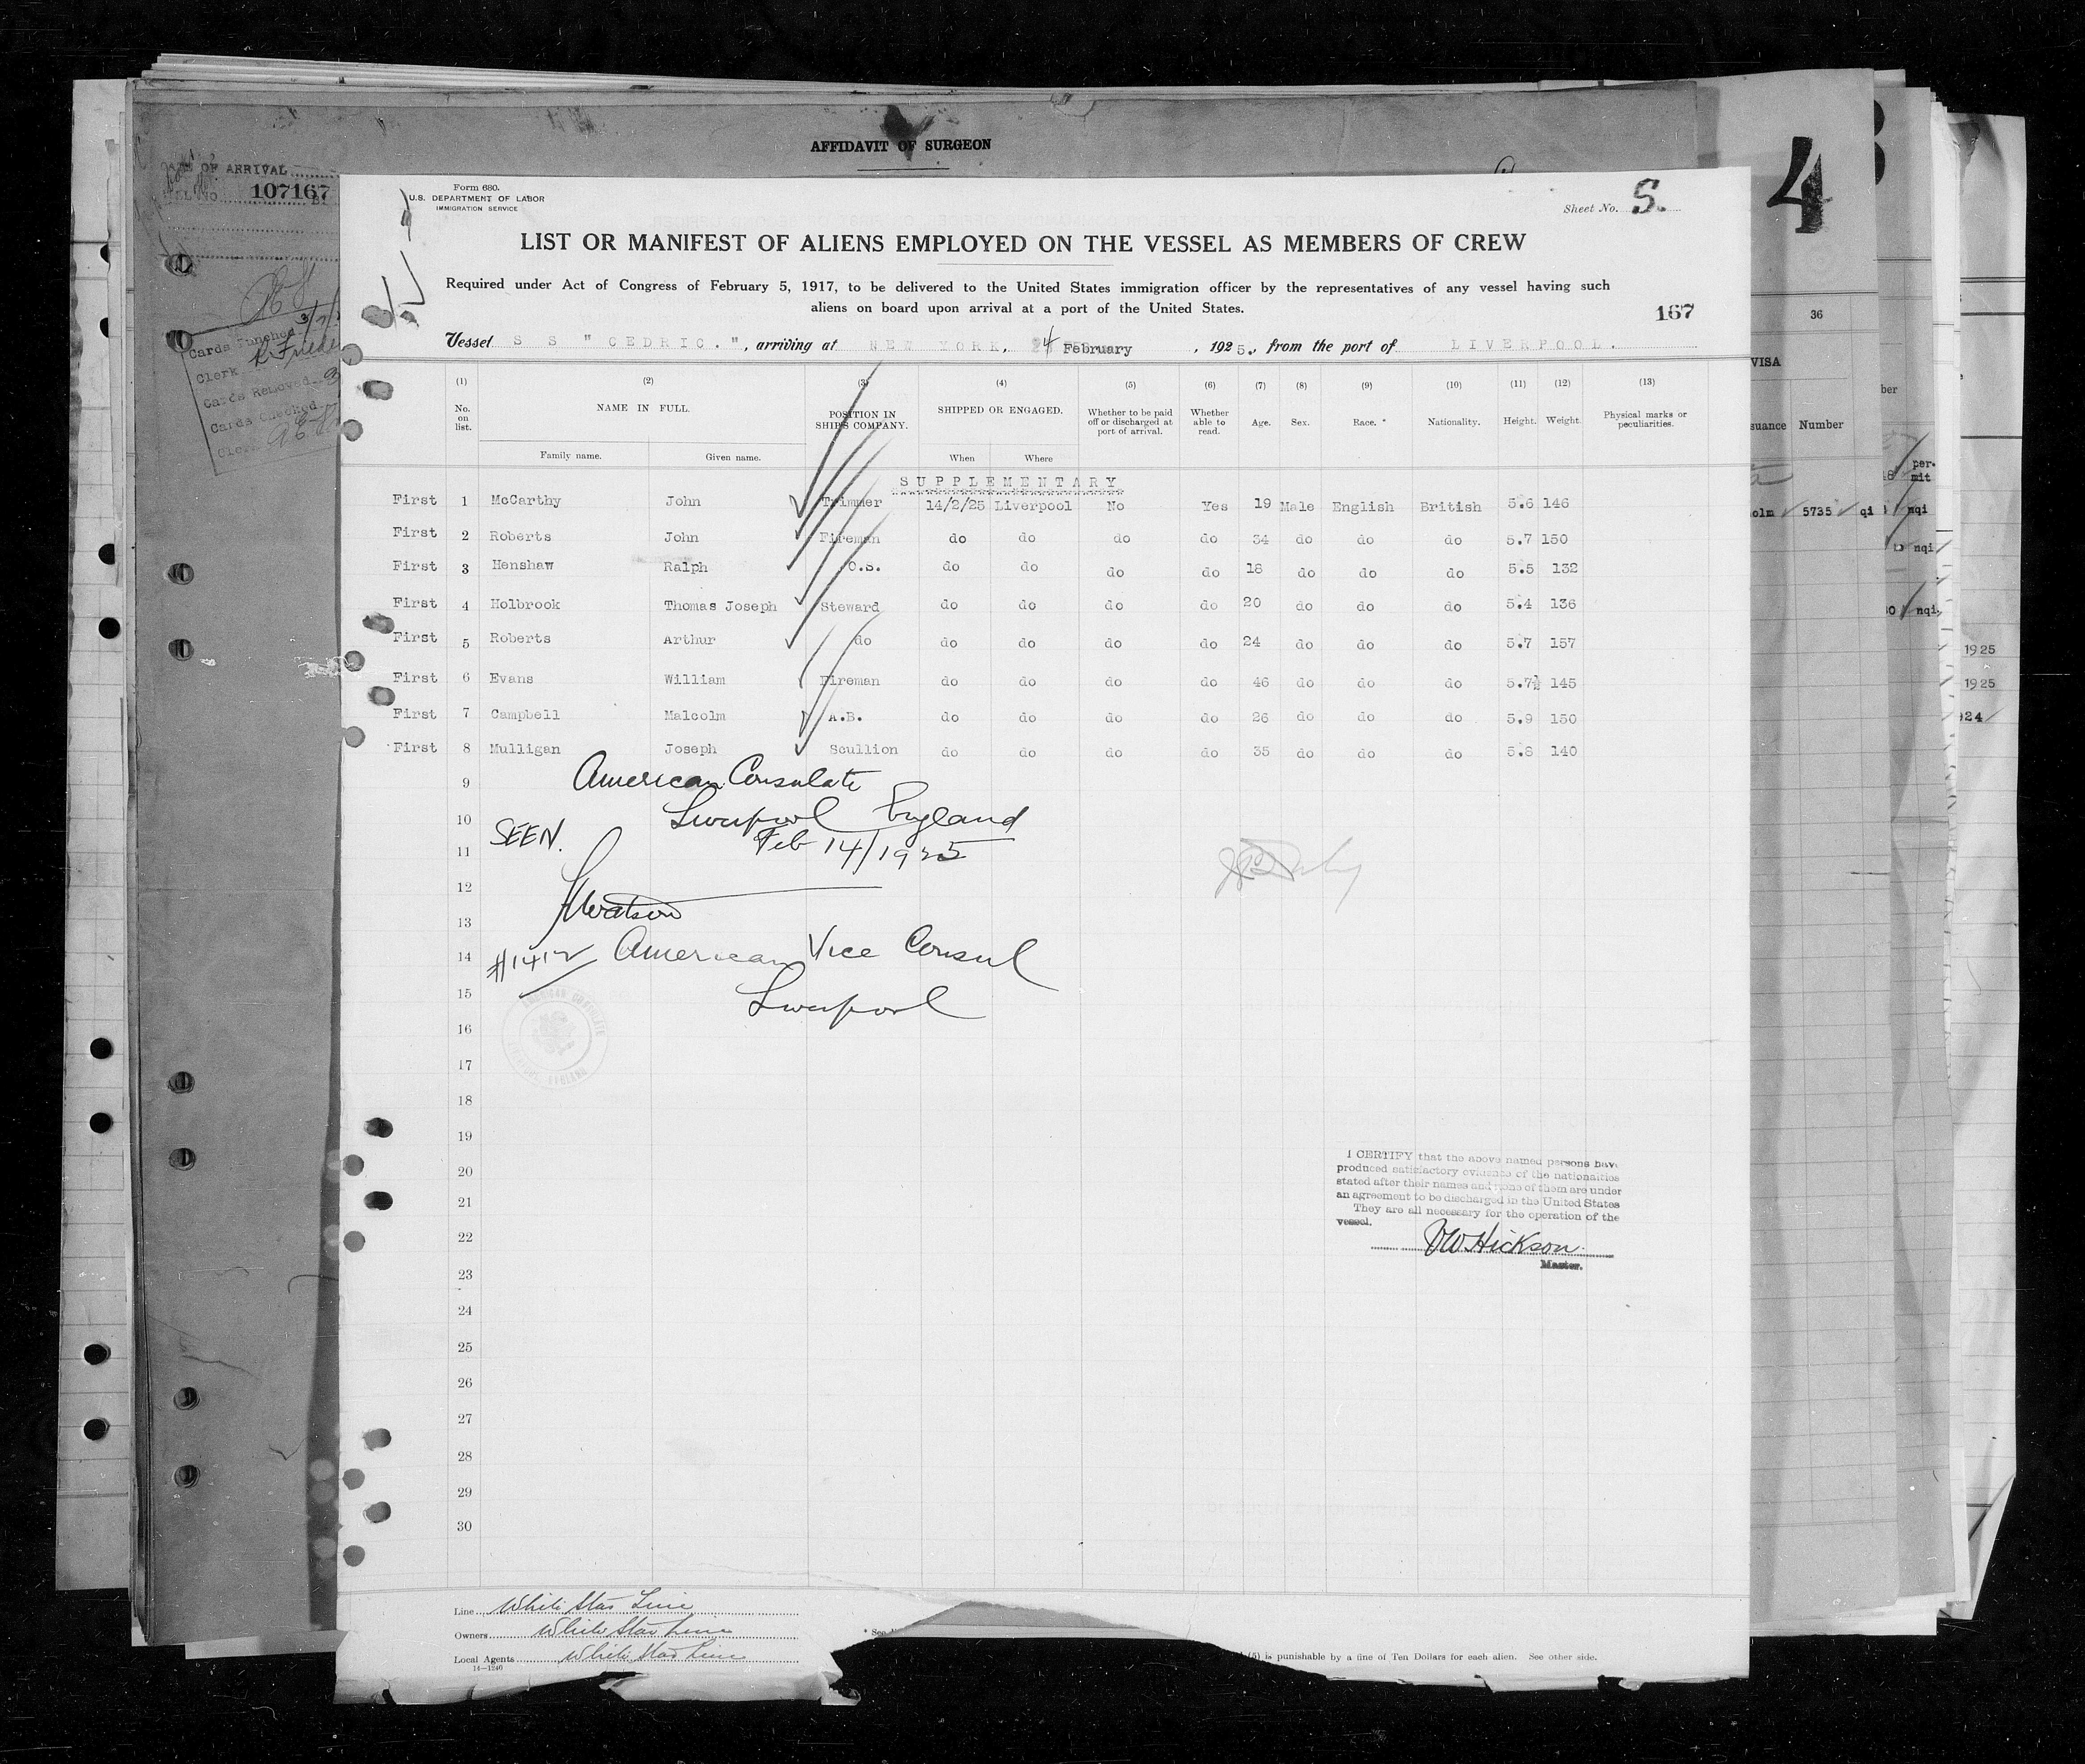 AFFIDAVIT OF SURGEON
OF ARRIVAL
107167
Cards Punched
Clerk
Cards Removed
Cards Checked
4
36
VISA
suance Number
5735 qi
per-
mit
nqi
nqi
nqi
1925
1925
Form 680.
U.S. DEPARTMENT OF LABOR
IMMIGRATION SERVICE
Sheet No. S.
LIST OR MANIFEST OF ALIENS EMPLOYED ON THE VESSEL AS MEMBERS OF CREW
Required under Act of Congress of February 5, 1917, to be delivered to the United States immigration officer by the representatives of any vessel having such
aliens on board upon arrival at a port of the United States.
167
Vessel S S " CEDRIC. ", arriving at NEW YORK, 24 February, 1925., from the port of LIVERPOOL.
(1) (2) (3) (4) (5) (6) (7) (8) (9) (10) (11) (12) (13)
No. on list. NAME IN FULL. POSITION IN SHIP'S COMPANY. SHIPPED OR ENGAGED. Whether to be paid off or discharged at port of arrival. Whether able to read. Age. Sex. Race. * Nationality. Height. Weight. Physical marks or peculiarities.
Family name. Given name. When Where
SUPPLEMENTARY
First 1 McCarthy John Trimmer 14/2/25 Liverpool No Yes 19 Male English British 5.6 146
First 2 Roberts John Fireman do do do do 34 do do do 5.7 150
First 3 Henshaw Ralph O.S. do do do do 18 do do do 5.5 132
First 4 Holbrook Thomas Joseph Steward do do do do 20 do do do 5.4 136
First 5 Roberts Arthur do do do do do 24 do do do 5.7 157
First 6 Evans William Fireman do do do do 46 do do do 5.7½ 145
First 7 Campbell Malcolm A.B. do do do do 26 do do do 5.9 150
First 8 Mulligan Joseph Scullion do do do do 35 do do do 5.8 140
9 American Consulate
10 Liverpool England
SEEN.
11 Feb 14/1925
12
13 Watson
14 #1412 American Vice Consul
15 Liverpool
AMERICAN CONSULATE
16
17
18
19
20
21
22
23
24
25
26
27
28
29
30
I CERTIFY that the above named persons have
produced satisfactory evidence of the nationalities
stated after their names and none of them are under
an agreement to be discharged in the United States
They are all necessary for the operation of the
vessel.
VW Hickson.
Master.
Line White Star Line
Owners White Star Line
Local Agents White Star Line
14—1240
* See
(5) is punishable by a fine of Ten Dollars for each alien. See other side.